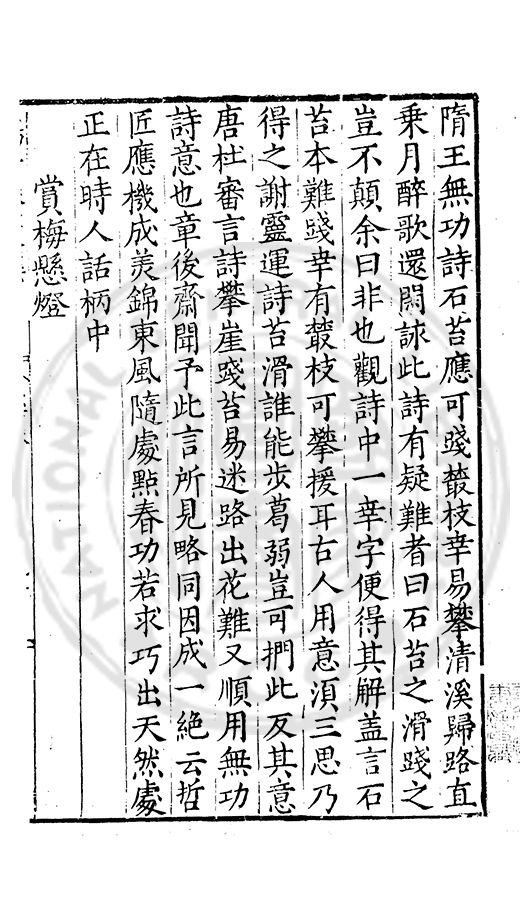 隋王無功詩石苔應可踐藂枝幸易攀清溪歸路直
乘月醉歌還閎詠此詩有疑難者曰石苔之滑踐之
豈不顛余曰非也觀詩中一幸字便得其解盖言石
苔本難踐幸有藂枝可攀援耳古人用意湏三思乃
得之謝靈運詩苔滑誰能步葛弱豈可捫此反其意
唐杜審言詩攀崖踐苔易迷路出花難又順用無功
詩意也章後齋聞予此言所見略同因成一絶云哲
匠應機成羙錦東風隨處點春功若求巧出天然處
正在時人話柄中
賞梅懸燈